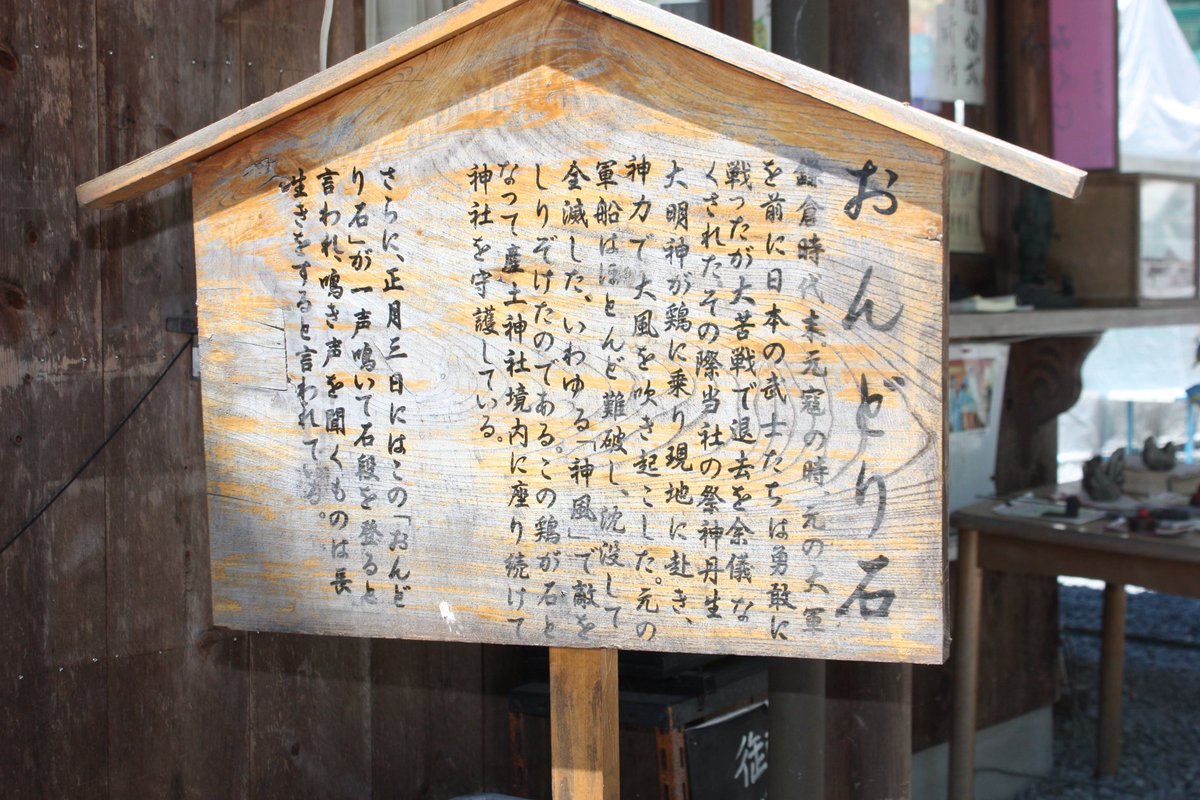 おんどり石
鎌倉時代末、元寇の時、元の大軍
を前に日本の武士たちは勇敢に
戦ったが大苦戦で退去を余儀な
くされた。その際当社の祭神丹生
大明神が鶏に乗り現地に赴き、
神力で大風を吹き起こした。元の
軍船はほとんど難破し、沈没して
全滅した、いわゆる「神風」で敵を
しりぞけたのである。この鶏が石と
なって産土神社境内に座り続けて
神社を守護している。
さらに、正月三日にはこの「おんど
り石」が一声鳴いて石段を登ると
言われ、鳴き声を聞くものは長
生きをすると言われてゐる。